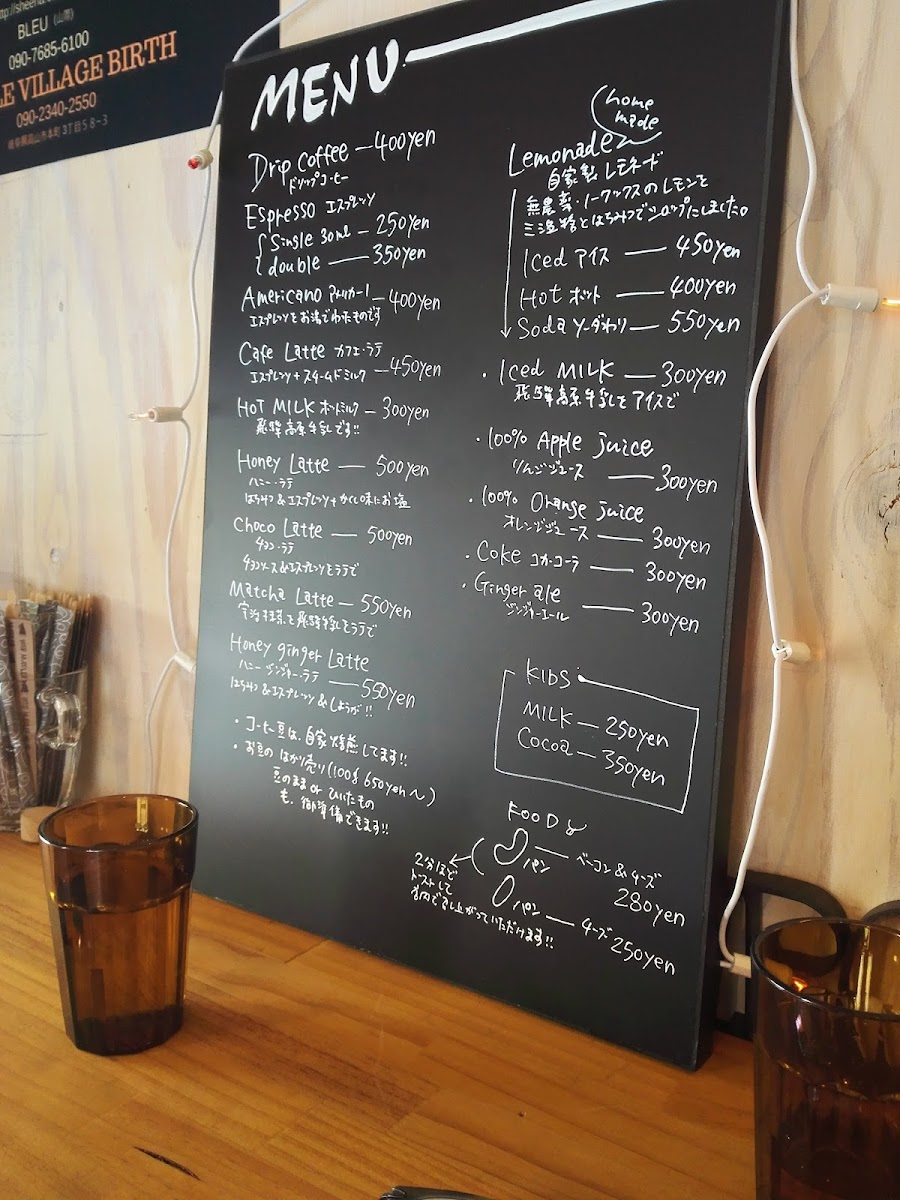 BLEU (山西)
090-7685-6100
LE VILLAGE BIRTH
090-2340-2550
岐阜県高山市本町3丁目58-3
MENU
Drip coffee — 400yen
ドリップコーヒー
Espresso エスプレッソ
Single 30ml — 250yen
double — 350yen
Americano アメリカーノ — 400yen
エスプレッソをお湯でわったものです
Cafe Latte カフェ・ラテ
エスプレッソ+スチームドミルク — 450yen
HOT MILK ホットミルク — 300yen
飛騨高原牛乳です!!
Honey Latte — 500yen
ハニー・ラテ
はちみつ&エスプレッソ+かくし味にお塩
Choco Latte — 500yen
チョコ・ラテ
チョコソース&エスプレッソをラテで
Matcha Latte — 550yen
宇治抹茶と飛騨牛乳をラテで
Honey ginger Latte
ハニージンジャーラテ — 550yen
はちみつ&エスプレッソ&しょうが!!
・コーヒー豆は、自家焙煎してます!!
・お豆のはかり売り(100g 650yen〜)
豆のまま or ひいたもの
も、御準備できます!!
(home made)
Lemonade
自家製レモネード
無農薬・ノーワックスのレモンを
三温糖とはちみつでシロップにしました。
Iced アイス — 450yen
Hot ホット — 400yen
Soda ソーダわり — 550yen
・Iced MILK — 300yen
飛騨高原牛乳をアイスで
・100% Apple juice
りんごジュース — 300yen
・100% Orange juice
オレンジジュース — 300yen
・Coke コカ・コーラ — 300yen
・Ginger ale
ジンジャーエール — 300yen
KIDS
MILK — 250yen
Cocoa — 350yen
FOOD
パン — ベーコン&チーズ
280yen
パン — チーズ 250yen
2分ほど
トーストして
店内で召し上がっていただけます!!